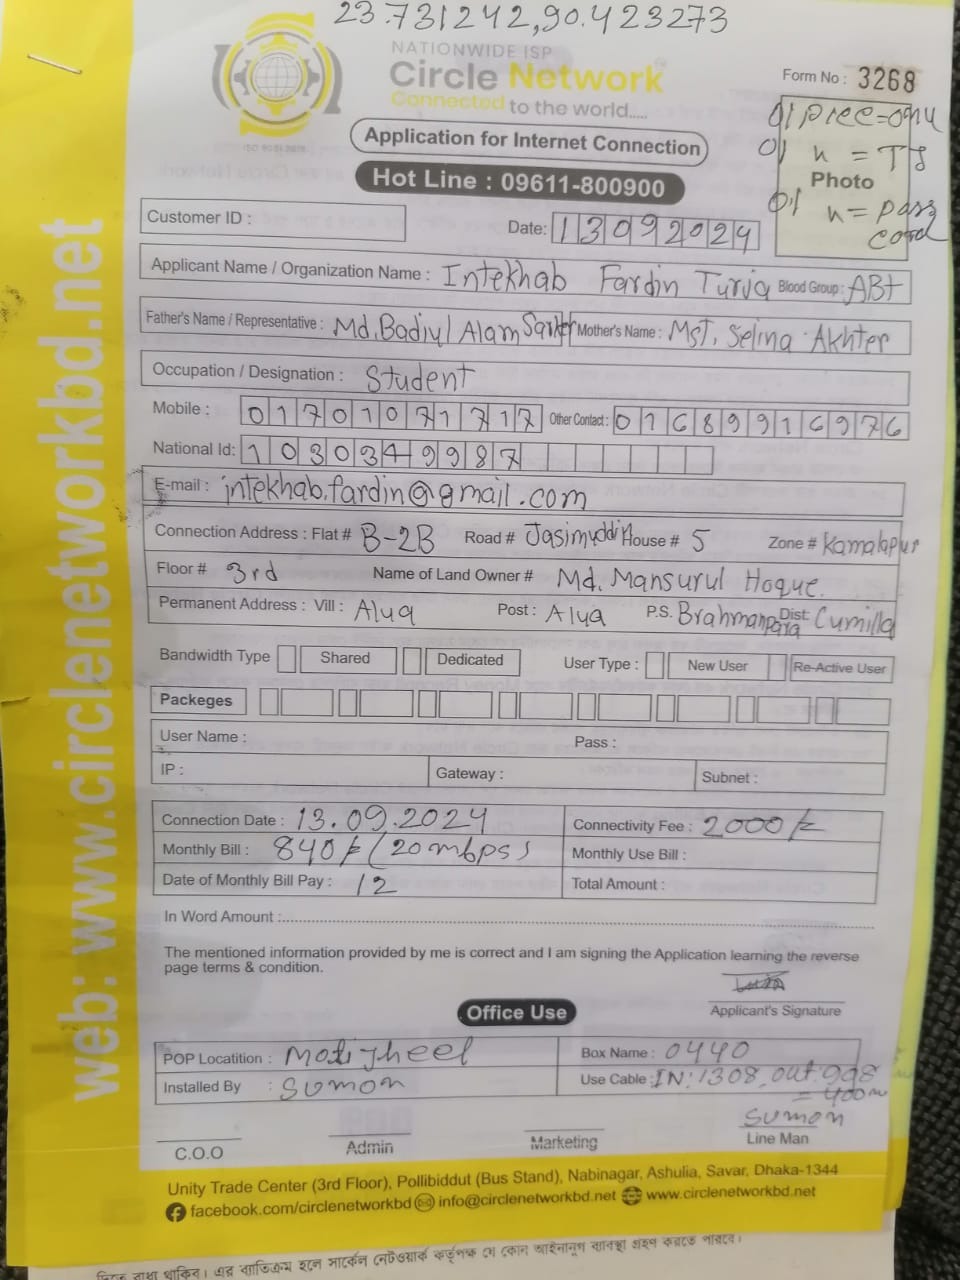 23.731242,90.423273
NATIONWIDE ISP
Circle Network
Connected to the world.....
ISO 9001:2015
Form No : 3268
Application for Internet Connection
Hot Line : 09611-800900
01 piece=onu
01 n = TJ
Photo
01 n= patch
cord
Customer ID :
Date: 13092024
Applicant Name / Organization Name : Intekhab Fardin Turja Blood Group : AB+
Father's Name / Representative : Md. Badiul Alam Sarker Mother's Name : Mst. Selina Akhter
Occupation / Designation : Student
Mobile : 01701071717 Other Contact : 01689916976
National Id: 1030349987
E-mail : intekhab.fardin@gmail.com
Connection Address : Flat # B-2B Road # Jasimuddin House # 5 Zone # Kamalapur
Floor # 3rd Name of Land Owner # Md. Mansurul Hoque.
Permanent Address : Vill : Alua Post : Alua P.S. Brahmanpara Dist: Cumilla
Bandwidth Type Shared Dedicated User Type : New User Re-Active User
Packeges
User Name : Pass :
IP : Gateway : Subnet :
Connection Date : 13.09.2024 Connectivity Fee : 2000/=
Monthly Bill : 840/= (20mbps) Monthly Use Bill :
Date of Monthly Bill Pay : 12 Total Amount :
In Word Amount :
The mentioned information provided by me is correct and I am signing the Application learning the reverse
page terms & condition.
Applicant's Signature
Office Use
POP Locatition : Motijheel Box Name : 0440
Installed By : Sumon Use Cable : IN:1308, out:998
= 400m
Sumon
C.O.O Admin Marketing Line Man
Unity Trade Center (3rd Floor), Pollibiddut (Bus Stand), Nabinagar, Ashulia, Savar, Dhaka-1344
facebook.com/circlenetworkbd info@circlenetworkbd.net www.circlenetworkbd.net
web: www.circlenetworkbd.net
দিতে বাধ্য থাকিব। এর ব্যতিক্রম হলে সার্কেল নেটওয়ার্ক কর্তৃপক্ষ যে কোন আইনানুগ ব্যবস্থা গ্রহণ করতে পারবে।